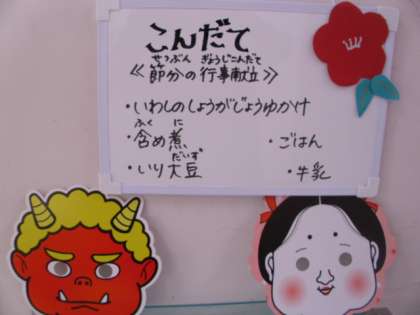 こんだて
せつぶん ぎょうじこんだて
≪節分の行事献立≫
・いわしのしょうがじょうゆかけ
ふくに
・含め煮 ・ごはん
だいず
・いり大豆 ・牛乳